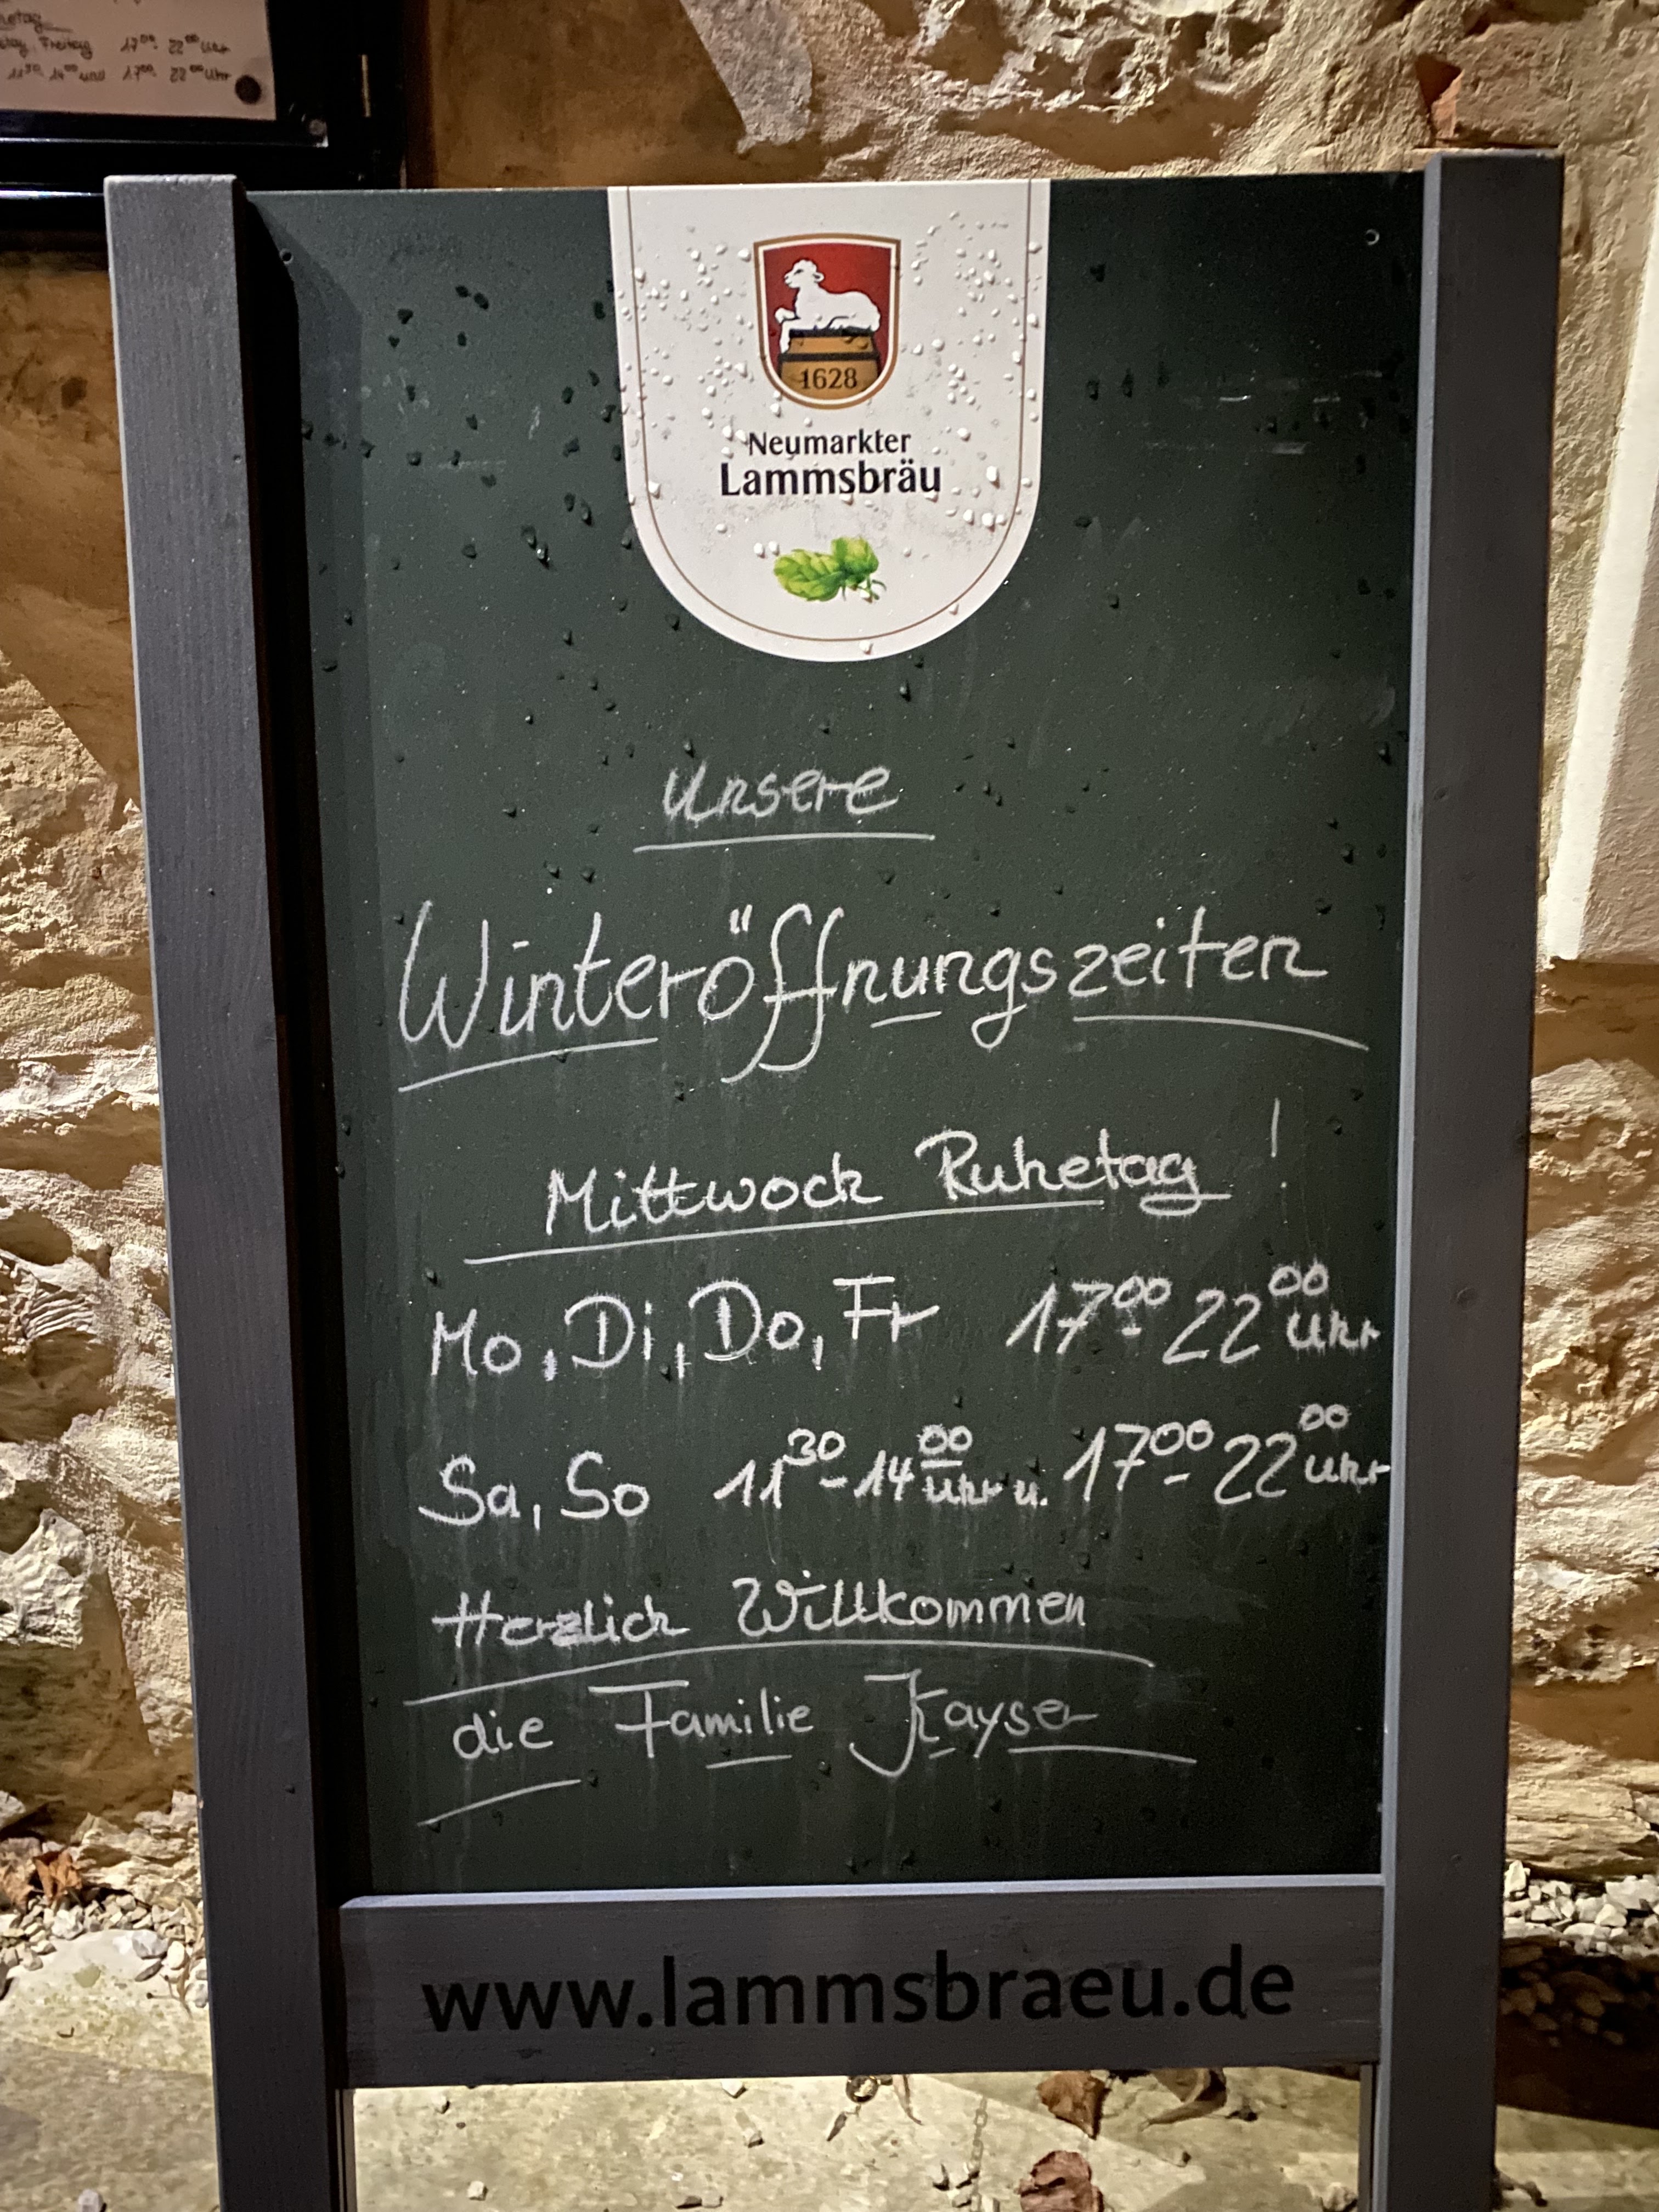 Freitag 17⁰⁰ 22⁰⁰ Uhr
11³⁰ 14⁰⁰ und 17⁰⁰ 22⁰⁰ Uhr
1628
Neumarkter
Lammsbräu
Unsere
Winteröffnungszeiten
Mittwoch Ruhetag !
Mo, Di, Do, Fr 17⁰⁰-22⁰⁰ Uhr
Sa, So 11³⁰-14⁰⁰ Uhr u. 17⁰⁰-22⁰⁰ Uhr
Herzlich Willkommen
die Familie Kayser
www.lammsbraeu.de